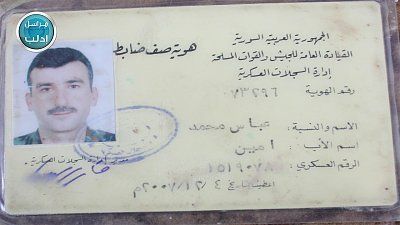 مراسل
ادلب
الجمهورية العربية السورية
القيادة العامة للجيش والقوات المسلحة
إدارة السجلات العسكرية
هوية صف ضابط
رقم الهوية ٧٣٢٩٦
الاسم والنسبة : عباس محمد
اسم الأب : امين
الرقم العسكري :
مدير إدارة السجلات العسكرية